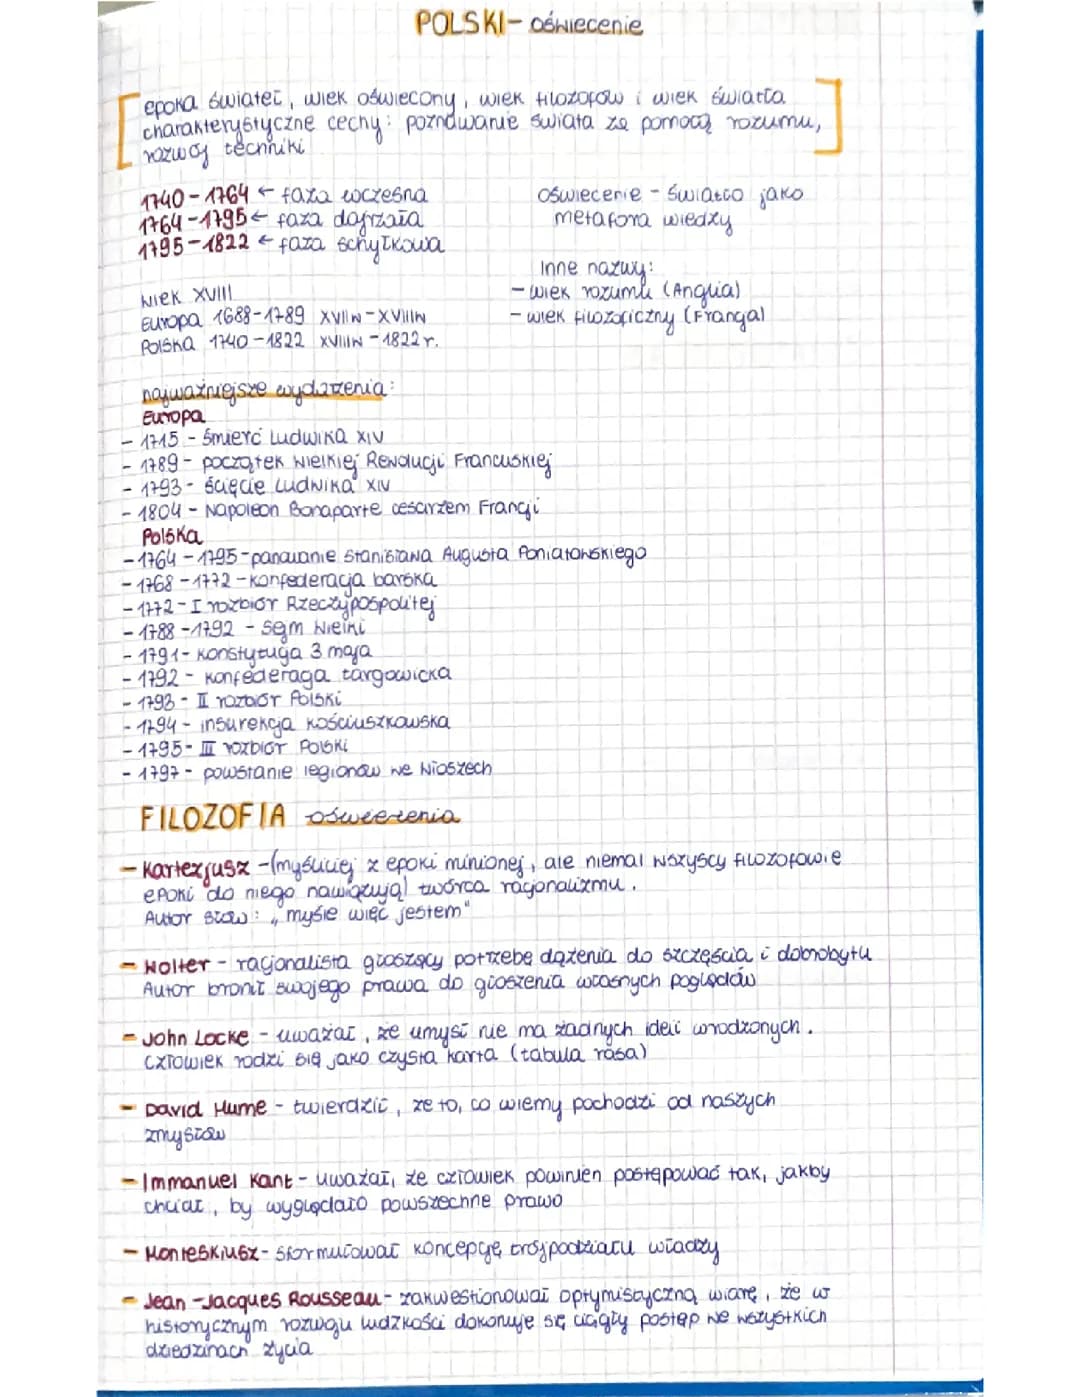 POLSKI - oświecenie
epoka świateł, wiek oświecony, wiek filozofów i wiek światła
charakterystyczne cechy: poznawanie świata za pomocą rozumu,
rozwój techniki
1740-1764 ← faza wczesna
1764-1795 ← faza dojrzała
1795-1822 ← faza schyłkowa
oświecenie - światło jako
metafora wiedzy
Inne nazwy:
- wiek rozumu (Anglia)
- wiek filozoficzny (Francja)
Wiek XVIII
Europa 1688-1789 XVIIw-XVIIIw
Polska 1740-1822 XVIIIw-1822r.
najważniejsze wydarzenia:
Europa
- 1715 - śmierć Ludwika XIV
- 1789 - początek Wielkiej Rewolucji Francuskiej
- 1793 - ścięcie Ludwika XIV
- 1804 - Napoleon Bonaparte cesarzem Francji
Polska
- 1764-1795 - panowanie Stanisława Augusta Poniatowskiego
- 1768-1772 - konfederacja barska
- 1772 - I rozbiór Rzeczypospolitej
- 1788-1792 - Sejm Wielki
- 1791 - konstytucja 3 maja
- 1792 - konfederacja targowicka
- 1793 - II rozbiór Polski
- 1794 - insurekcja kościuszkowska
- 1795 - III rozbiór Polski
- 1797 - powstanie legionów we Włoszech
FILOZOFIA oświecenia
- Kartezjusz - (myśliciej z epoki minionej, ale niemal wszyscy filozofowie
epoki do niego nawiązują) twórca racjonalizmu.
Autor słów: „myśle więc jestem"
- Wolter - racjonalista głoszący potrzebę dążenia do szczęścia i dobrobytu
Autor bronił swojego prawa do głoszenia własnych poglądów
- John Locke - uważał, że umysł nie ma żadnych ideii wrodzonych.
Człowiek rodzi się jako czysta karta (tabula rasa)
- David Hume - twierdził, że to, co wiemy pochodzi od naszych
zmysłów
- Immanuel Kant - uważał, że człowiek powinien postępować tak, jakby
chciał, by wyglądało powszechne prawo
- Monteskiusz - sformułował koncepcję trójpodziału władzy
- Jean-Jacques Rousseau - zakwestionował optymistyczną wiarę, że w
historycznym rozwoju ludzkości dokonuje się ciągły postęp we wszystkich
dziedzinach życia